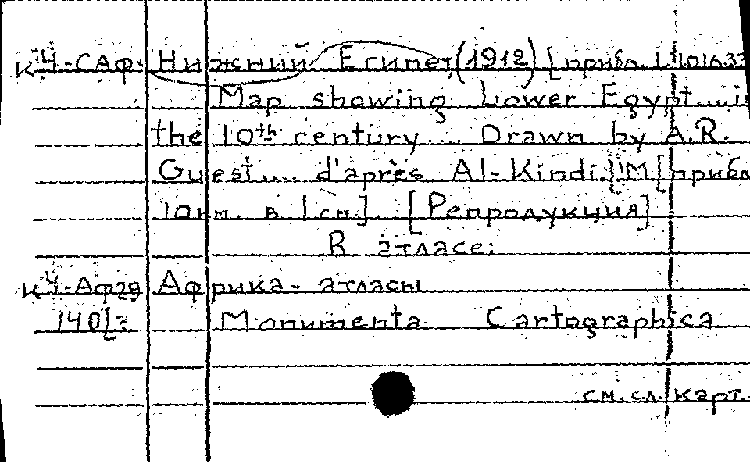 К Ч-САФ Нижний Египет (1912) [прибл. 1:1016.33
Map showing Lower Egypt ... i
the 10th century ... Drawn by A.R.
Guest ... d'après Al-Kindi.] 'М [прибл
10км. в 1см.] [Репродукция]
В атласе:
К Ч-Аф29 Африка - атласы
140 Monumenta Cartographica
см. сл. карт.